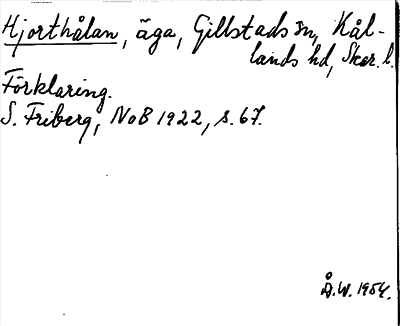 Hjorthålan, äga, Gillstads sn, Kål-
lands hd, Skar. l.
Förklaring.
S. Friberg, NoB 1922, s. 67.
Å.W. 1954.